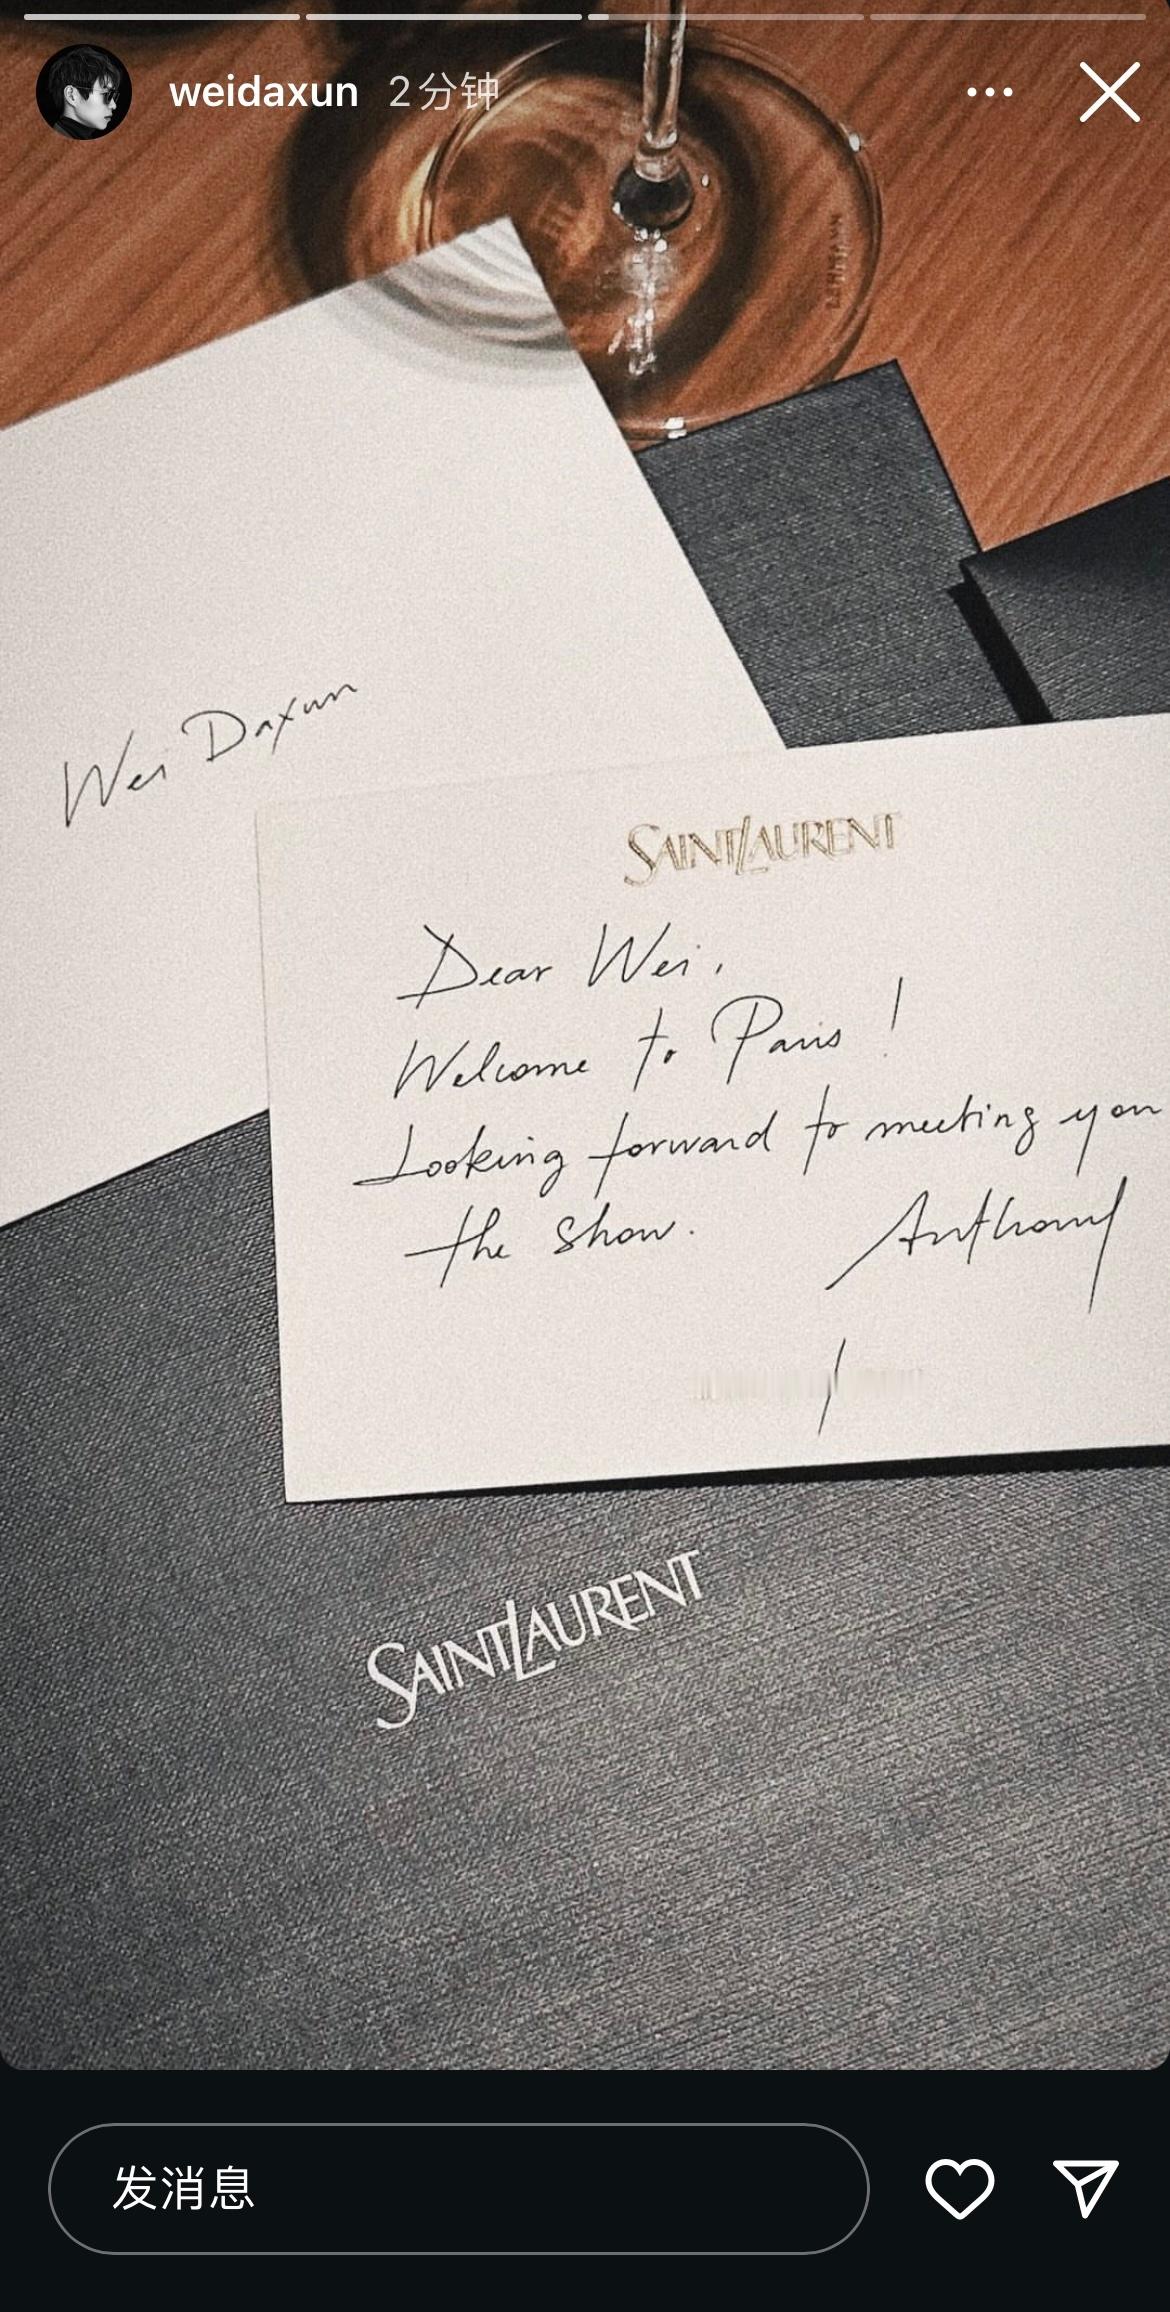 weidaxun 2分钟
Wei Daxun
SAINT LAURENT
Dear Wei,
Welcome to Paris !
Looking forward to meeting you
the show.
Anthony
SAINT LAURENT
发消息